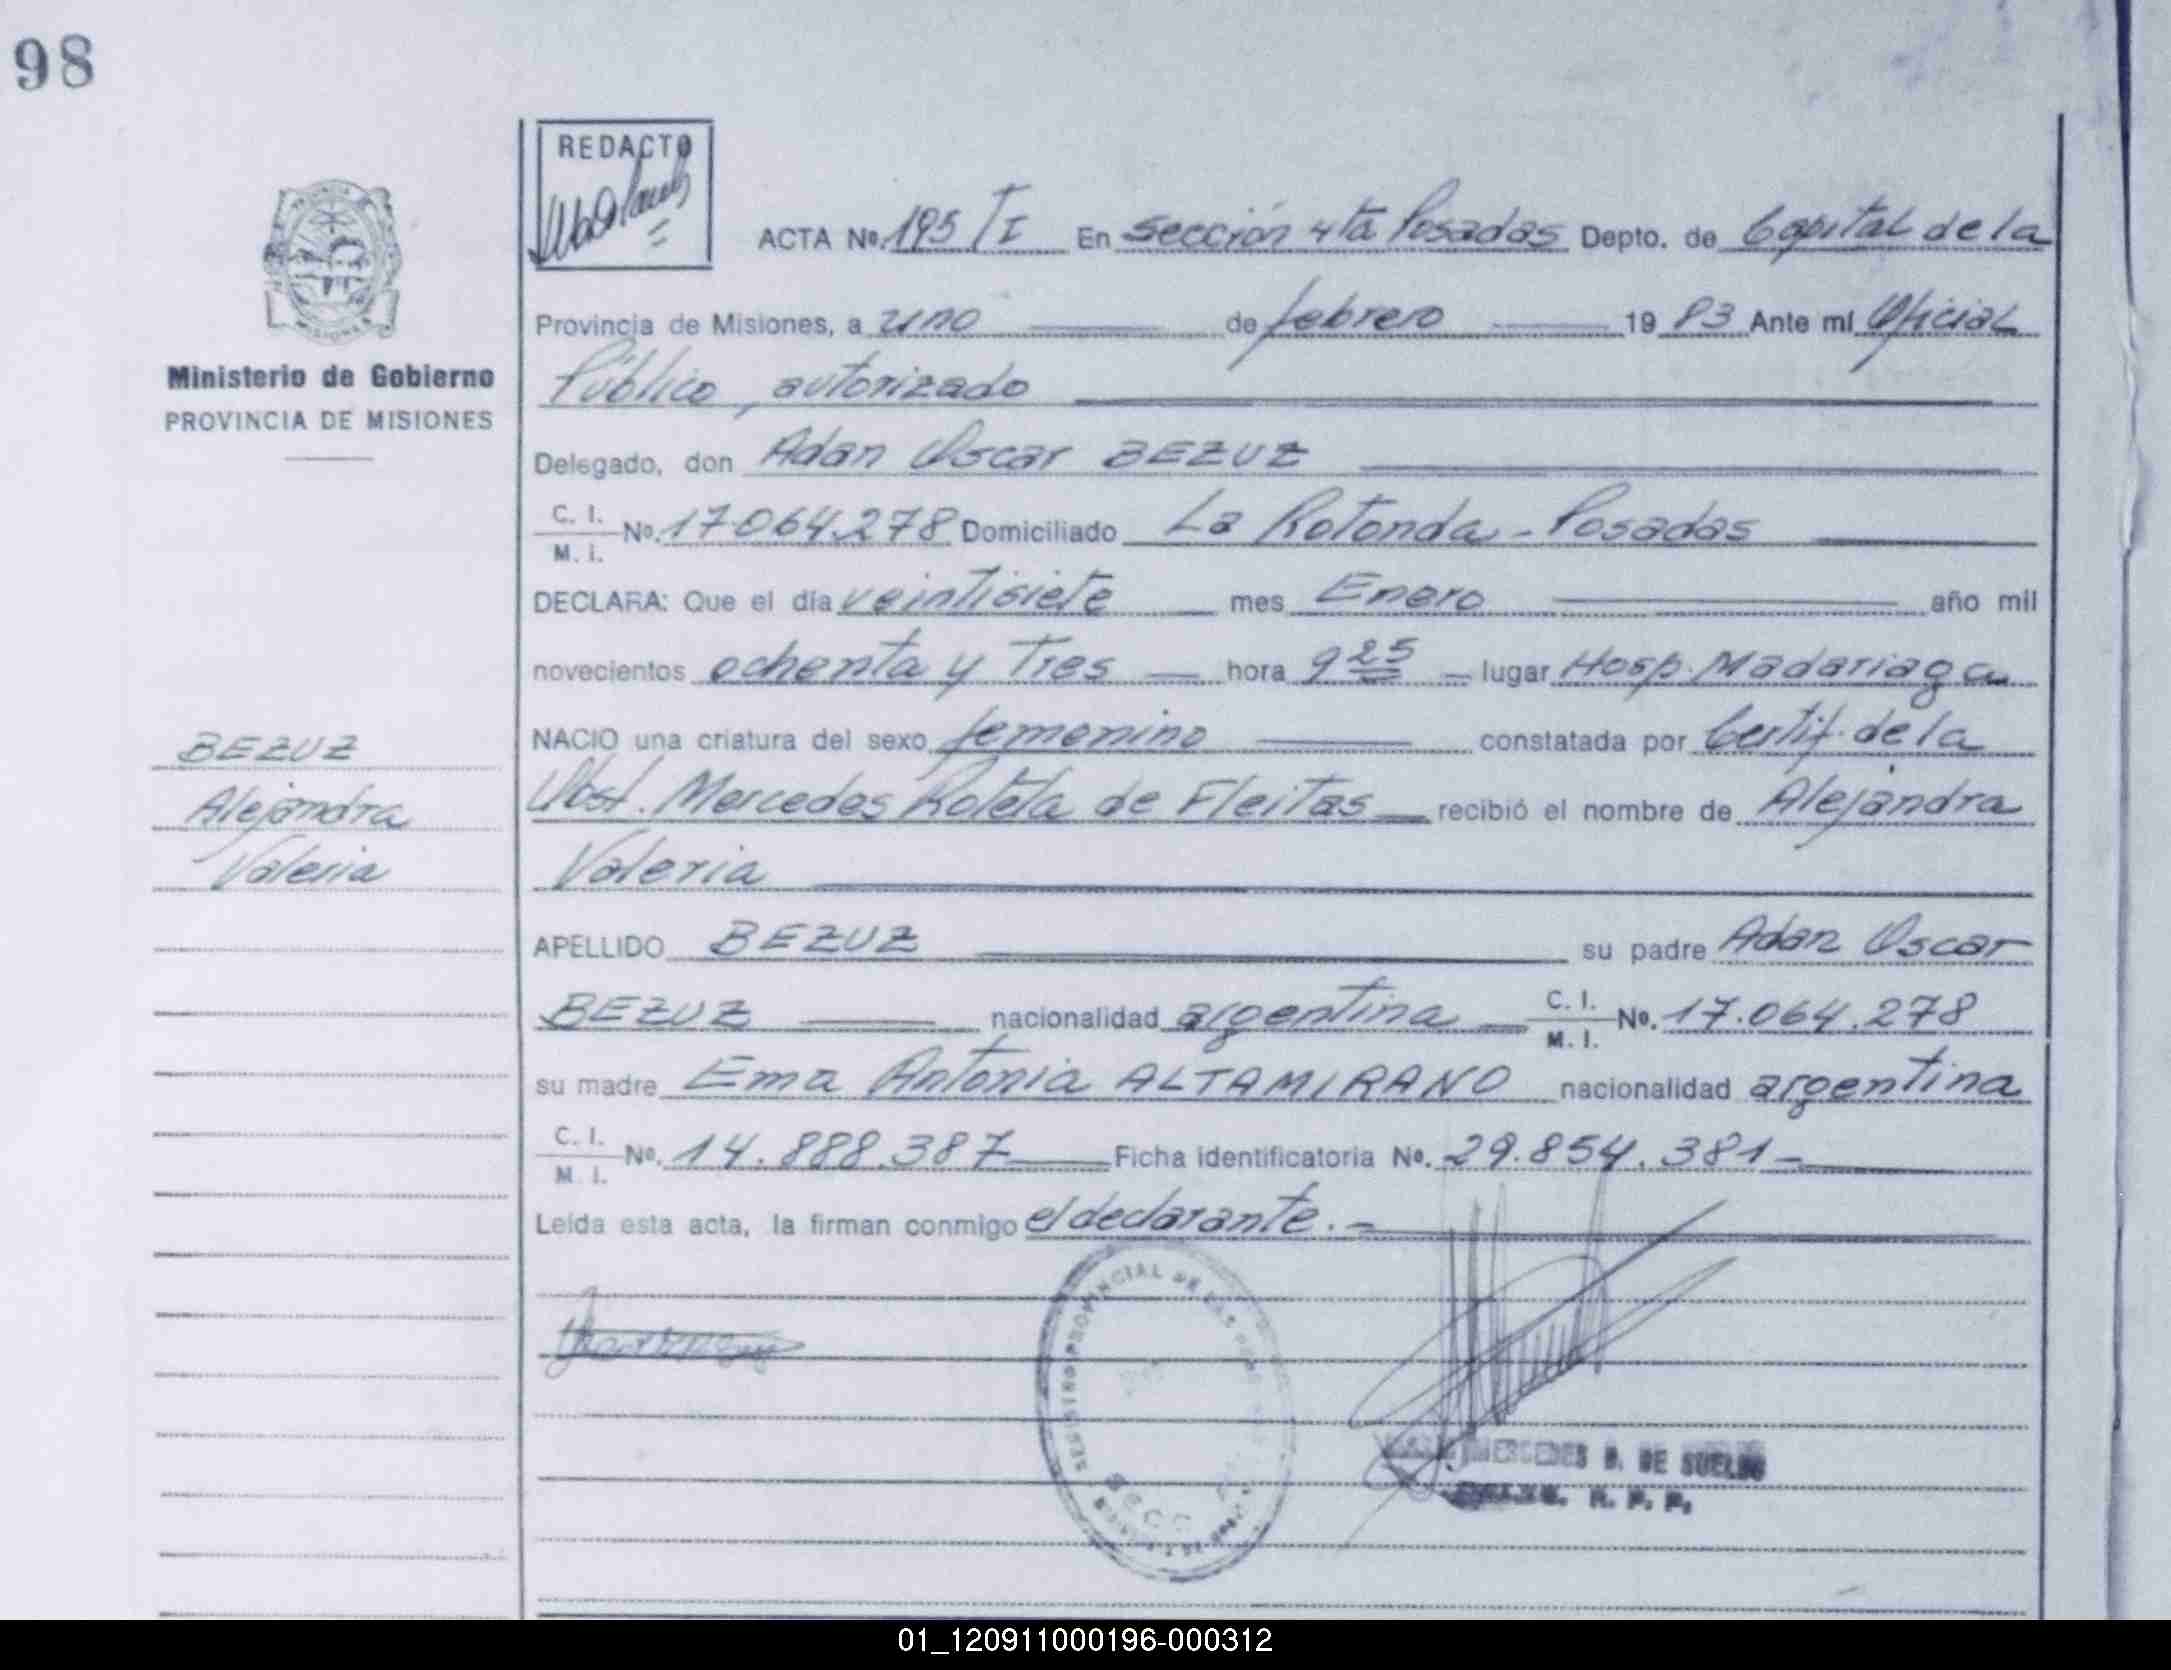 98
REDACTO
ACTA Nº. 195 / I En Sección 4ta Posadas Depto. de Capital de la
Provincia de Misiones, a uno de febrero 19 83 Ante mí Oficial
Público, autorizado
Ministerio de Gobierno
PROVINCIA DE MISIONES
Delegado, don Adan Oscar BEZUZ
C. I.
M. I. Nº. 17064.278 Domiciliado La Rotonda - Posadas
DECLARA: Que el día veintisiete mes Enero año mil
novecientos ochenta y Tres hora 9 25 lugar Hosp. Madariaga
BEZUZ
Alejandra
Valeria
NACIO una criatura del sexo femenino constatada por Certif. de la
Obst. Mercedes Roteta de Fleitas recibió el nombre de Alejandra
Valeria
APELLIDO BEZUZ su padre Adan Oscar
BEZUZ nacionalidad argentina C. I.
M. I. Nº. 17.064.278
su madre Ema Antonia ALTAMIRANO nacionalidad argentina
C. I.
M. I. Nº. 14.888.387 Ficha identificatoria Nº. 29.854.381-
Leída esta acta, la firman conmigo el declarante.-
REGISTRO PROVINCIAL DE LAS
MERCEDES B. DE SUELDO
R. P. P.
01_120911000196-000312